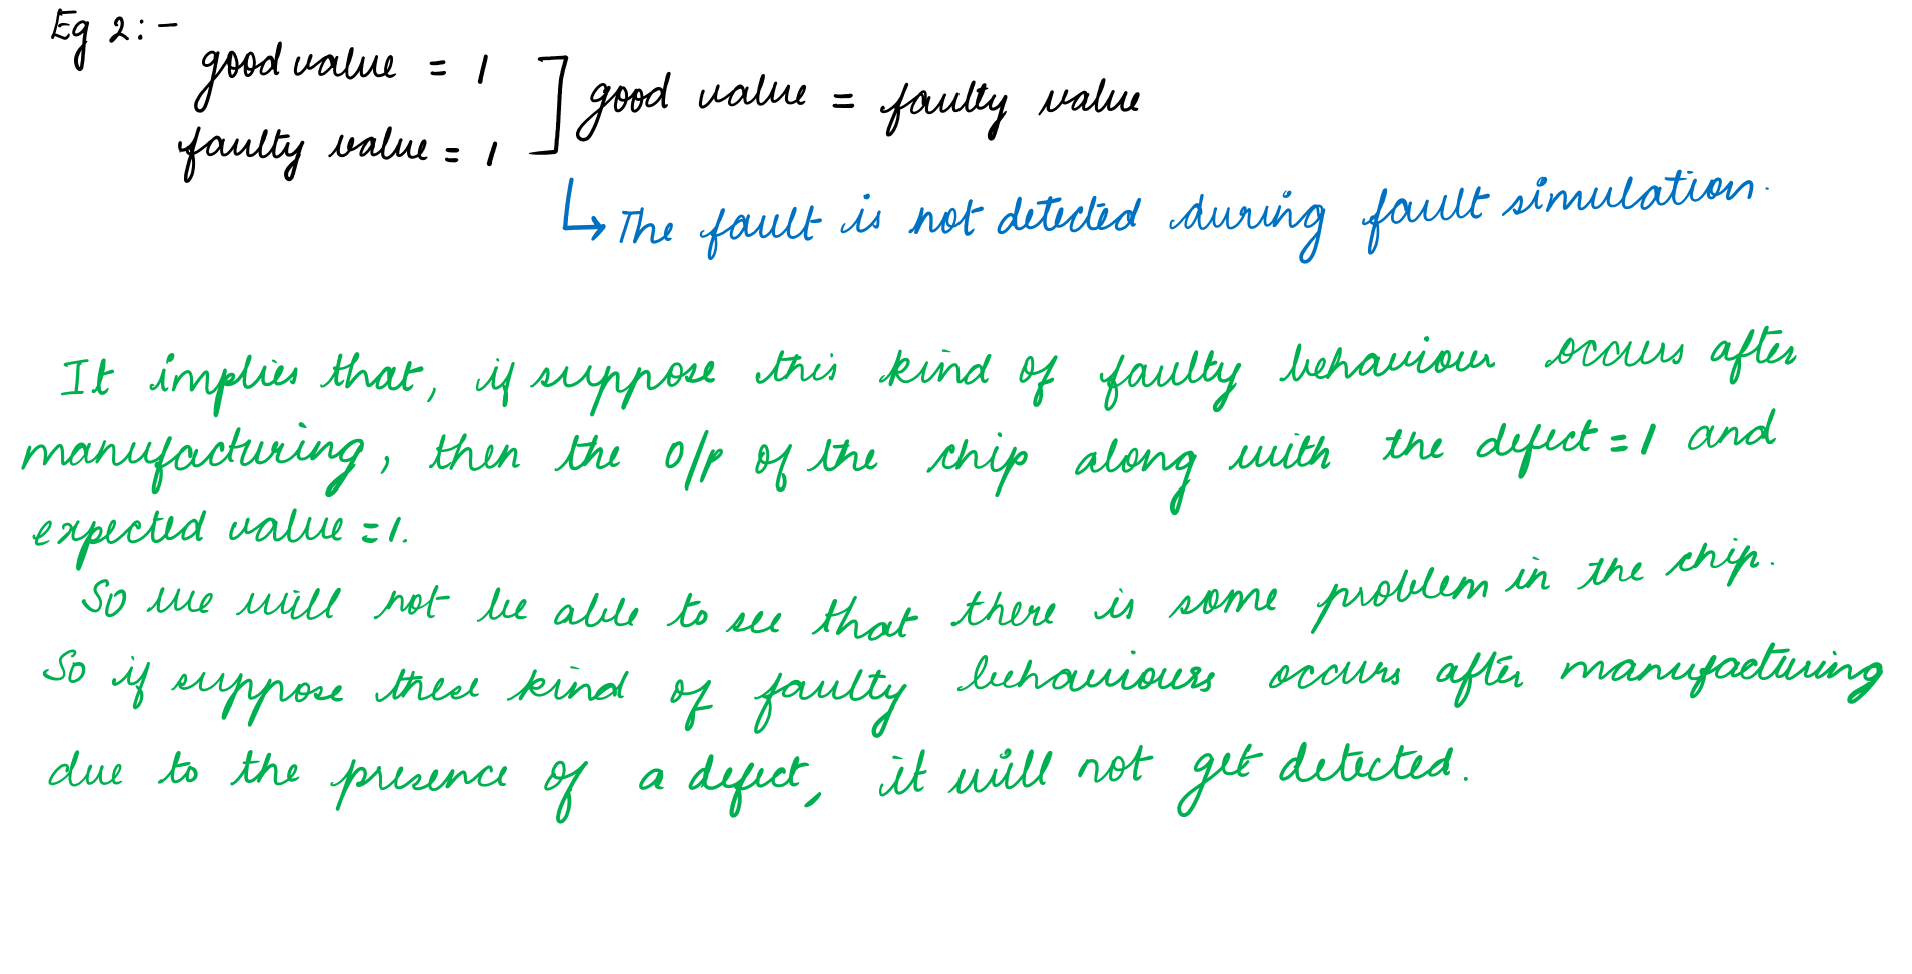 Eg 2:-
good value = 1
faulty value = 1
good value = faulty value
The fault is not detected during fault simulation.
It implies that, if suppose this kind of faulty behaviour occurs after
manufacturing, then the o/p of the chip along with the defect = 1 and
expected value = 1.
So we will not be able to see that there is some problem in the chip.
So if suppose these kind of faulty behaviours occurs after manufacturing
due to the presence of a defect, it will not get detected.